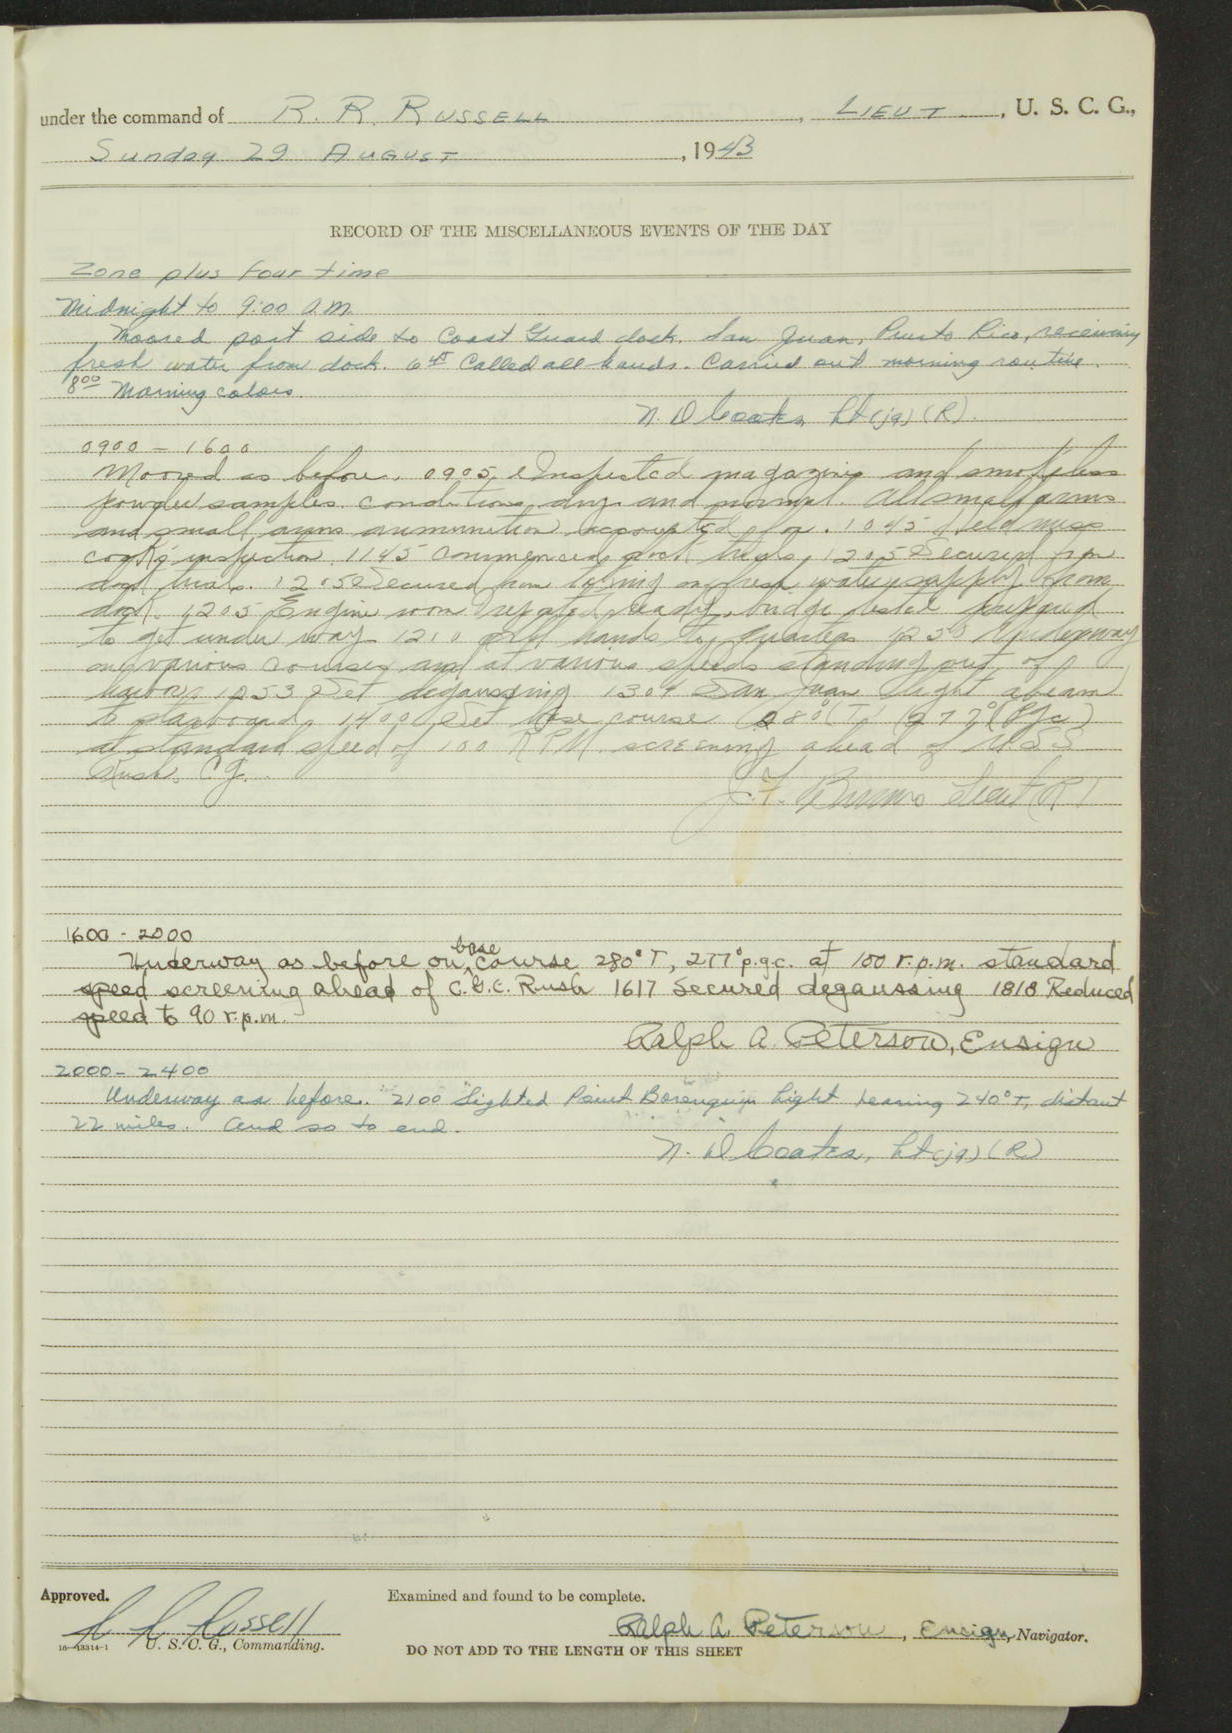 under the command of R. R. RUSSELL, LIEUT, U. S. C. G.,
Sunday 29 AUGUST, 1943
RECORD OF THE MISCELLANEOUS EVENTS OF THE DAY
Zone plus four time
Midnight to 9:00 A.M.
Moored port side to Coast Guard dock, San Juan, Puerto Rico, receiving
fresh water from dock. 645 Called all hands. Carried out morning routine.
800 Morning colors.
N. D. Coates, Lt(jg)(R).
0900 - 1600
Moored as before. 0905 Inspected magazines and smokeless
powder samples. Conditions dry and normal. All small arms
and small arms ammunition accounted for. 1045 Held mess
cooks' inspection. 1145 Commenced dock trials, 1205 Secured from
dock trials. 1205 Secured from taking on fresh water supply from
dock. 1205 Engine room reported ready, bridge tested prepared
to get under way. 1210 All hands to quarters Underway
on various courses and at various speeds standing out of
harbor. 1253 Set degaussing 1304 San Juan Light abeam
to starboard, 1400 Set base course 280°(T) 277°(Pgc)
at standard speed of 100 RPM screening ahead of USS
Rush CG.
J. F. Lieut (R)
1600 - 2000
Underway as before on base course 280°T, 277°p.g.c. at 100 r.p.m. standard
speed screening ahead of C.G.C. Rush 1617 Secured degaussing 1818 Reduced
speed to 90 r.p.m.
Ralph A. Peterson, Ensign
2000 - 2400
Underway as before. 2100 Sighted Point Borenquin Light bearing 240°T, distant
22 miles. And so to end.
N. D. Coates, Lt(jg)(R)
Approved. Examined and found to be complete.
R R Russell Ralph A. Peterson, Ensign, Navigator.
16-13314-1 U. S. C. G., Commanding. DO NOT ADD TO THE LENGTH OF THIS SHEET